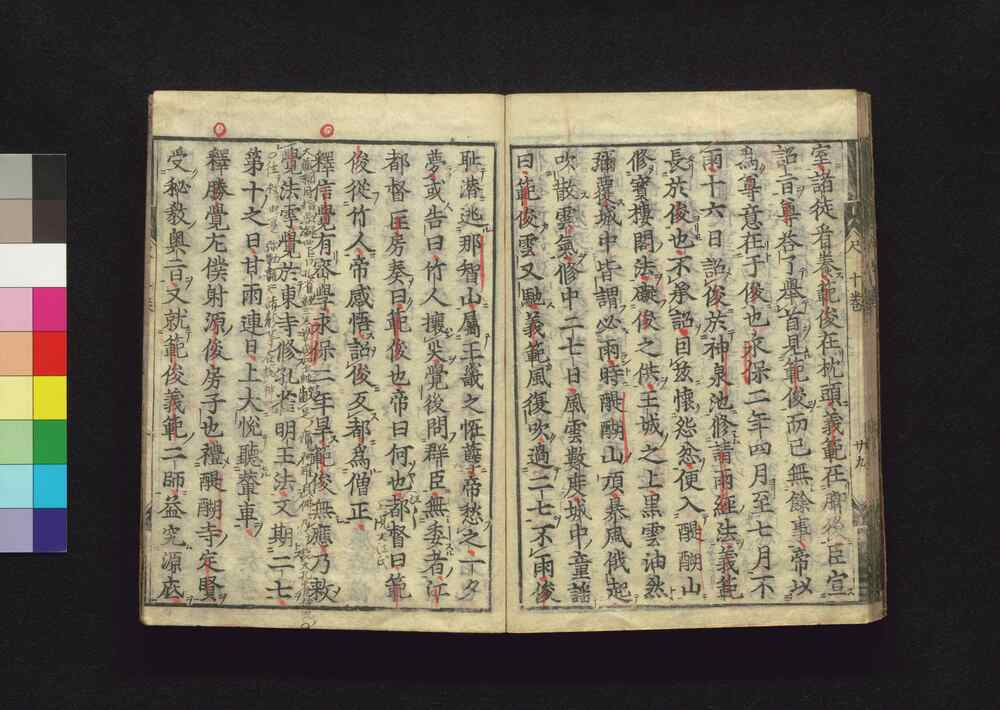 室諸徒看義範俊在枕頭義範在廊後臣宣
詔言尊答了擧首見範俊而已無餘事帝以
爲尊意在于俊也永保二年四月至七月不
雨十六日詔俊於神泉池修請雨經法義範
長於俊也不承詔曰茲懷怨忿便入醍醐山
修寶樓閣法礙俊之供王城之上黑雲油然
彌覆城中皆謂必雨時醍醐山頂暴風俄起
吹散雲氣修中二七日風雲數度城中童謠
曰範俊雲又馳義範風復吹過二七不雨俊
恥潛逃那智山屬王畿之恠孽帝愁之一夕
夢或告曰竹人攘災覺後問群臣無委者江
都督匡房奏曰範俊也帝曰何也都督曰範
俊從竹人帝感悟詔俊反都爲僧正
釋信覺有密學永保二年旱範俊無應乃敕
覺法雲覺於東寺修孔雀明王法又期二七
第十之日甘雨連日上大悅聽輦車
釋勝覺左僕射源俊房子也禮醍醐寺定賢
受秘敎奧旨又就範俊義範二師益究源底
十卷
廿九